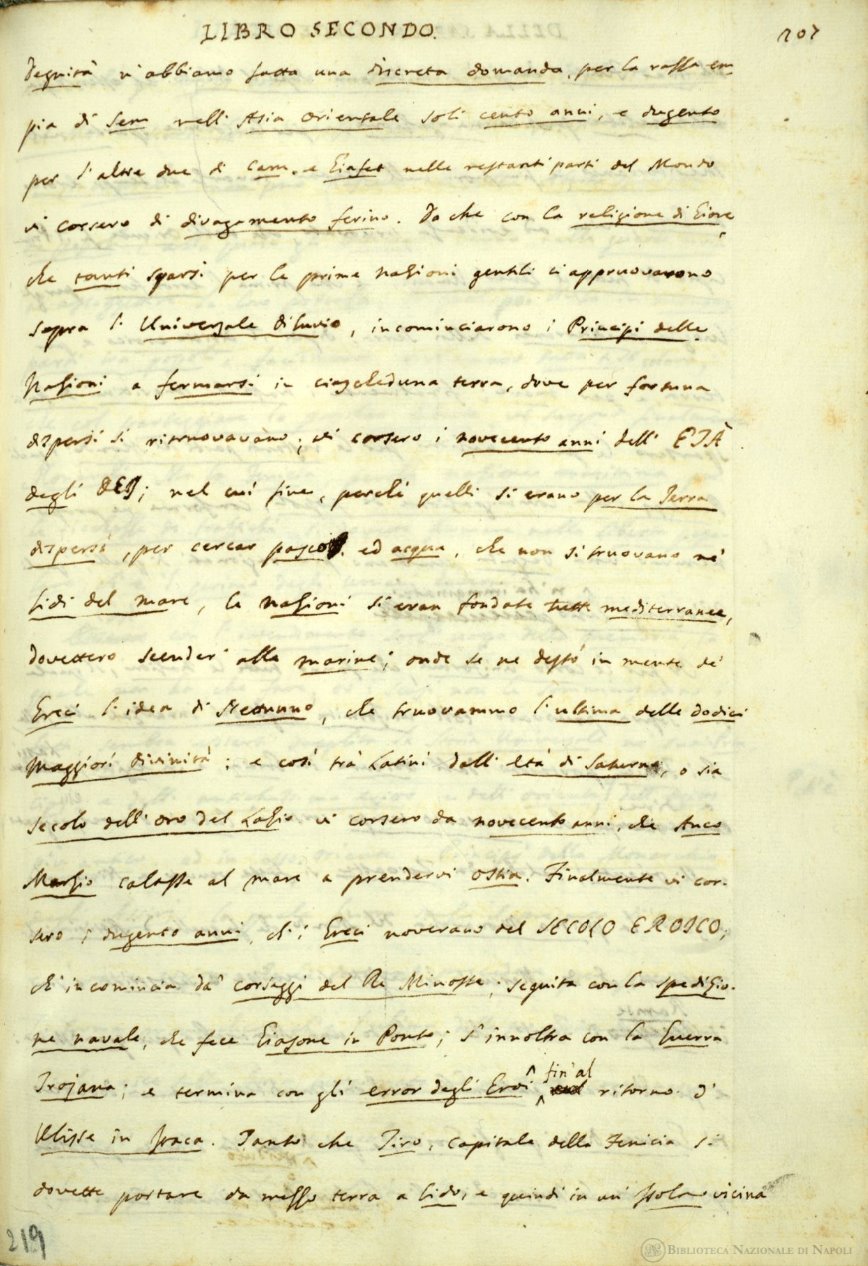 LIBRO SECONDO.
207
Degnità n'abbiamo fatta una discreta domanda, per la razza em
pia di Sem nell'Asia Orientale soli cento anni, e dugento
per l'altre due di Cam, e Giafet nelle restanti parti del Mondo
vi corsero di divagamento ferino. Da che con la religione di Giove,
che tanti sparsi per le prime nazioni gentili ci appruovarono
sopra l'Universale Diluvio, incominciarono i Principi delle
Nazioni a fermarsi in ciascheduna terra, dove per fortuna
dispersi si ritruovavano; vi corsero i novecento anni dell'ETÀ
degli DEI; nel cui fine, perché quelli si erano per la Terra
dispersi, per cercar pascolo, ed acqua, che non si truovano ne'
lidi del mare, le Nazioni si eran fondate tutte mediterranee,
dovettero scender' alle marine; onde se ne destò in mente de'
Greci l'idea di Nettunno, che truovammo l'ultima delle dodici
Maggiori divinità: e così tra' Latini dall'età di Saturno, o sia
secolo dell'oro del Lazio vi corsero da novecento anni, che Anco
Marzio calasse al mare a prendervi Ostia. Finalmente vi cor-
sero i dugento anni, ch'i Greci noverano del SECOLO EROICO;
ch'incomincia da' corseggi del Re Minosse; seguita con la spedizio-
ne navale, che fece Giasone in Ponto; s'innoltra con la Guerra
Trojana; e termina con gli error degli Eroi fin'al ritorno d'
Ulisse in Itaca. Tanto che Tiro, capitale della Fenicia si
dovette portare da mezzo terra a lido, e quindi in un'Isola vicina
219
BIBLIOTECA NAZIONALE DI NAPOLI